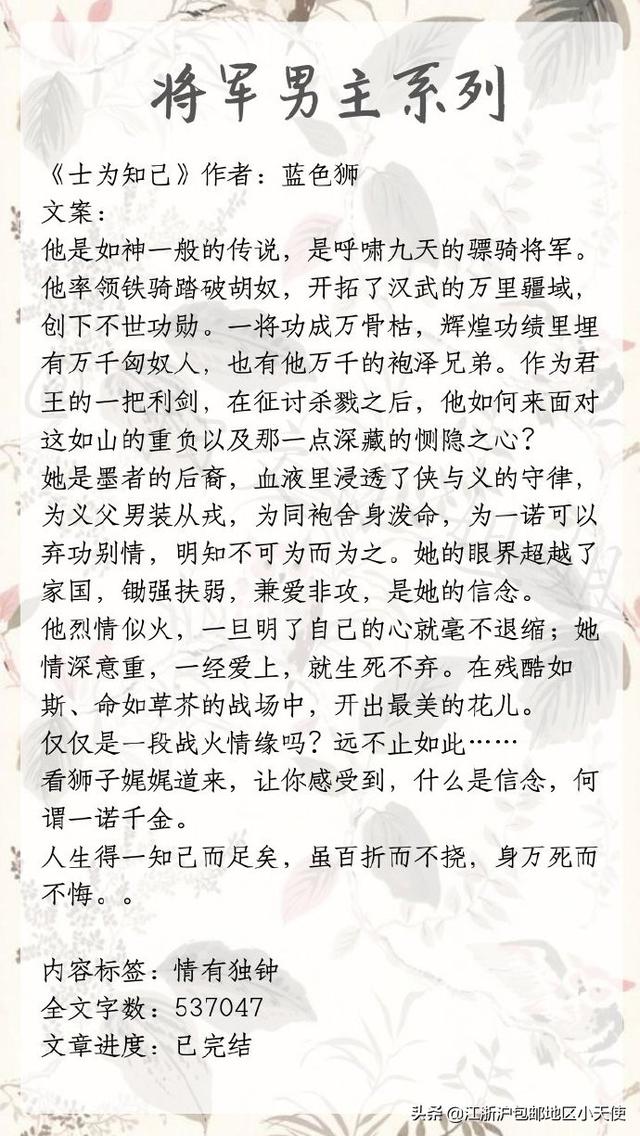 将军男主系列
《士为知己》作者：蓝色狮
文案：
他是如神一般的传说，是呼啸九天的骠骑将军。
他率领铁骑踏破胡奴，开拓了汉武的万里疆域，
创下不世功勋。一将功成万骨枯，辉煌功绩里埋
有万千匈奴人，也有他万千的袍泽兄弟。作为君
王的一把利剑，在征讨杀戮之后，他如何来面对
这如山的重负以及那一点深藏的恻隐之心？
她是墨者的后裔，血液里浸透了侠与义的守律，
为义父男装从戎，为同袍舍身泼命，为一诺可以
弃功别情，明知不可为而为之。她的眼界超越了
家国，锄强扶弱，兼爱非攻，是她的信念。
他烈情似火，一旦明了自己的心就毫不退缩；她
情深意重，一经爱上，就生死不弃。在残酷如
斯、命如草芥的战场中，开出最美的花儿。
仅仅是一段战火情缘吗？远不止如此……
看狮子娓娓道来，让你感受到，什么是信念，何
谓一诺千金。
人生得一知己而足矣，虽百折而不挠，身万死而
不悔。。
内容标签：情有独钟
全文字数：537047
文章进度：已完结
头条 @江浙沪包邮地区小天使